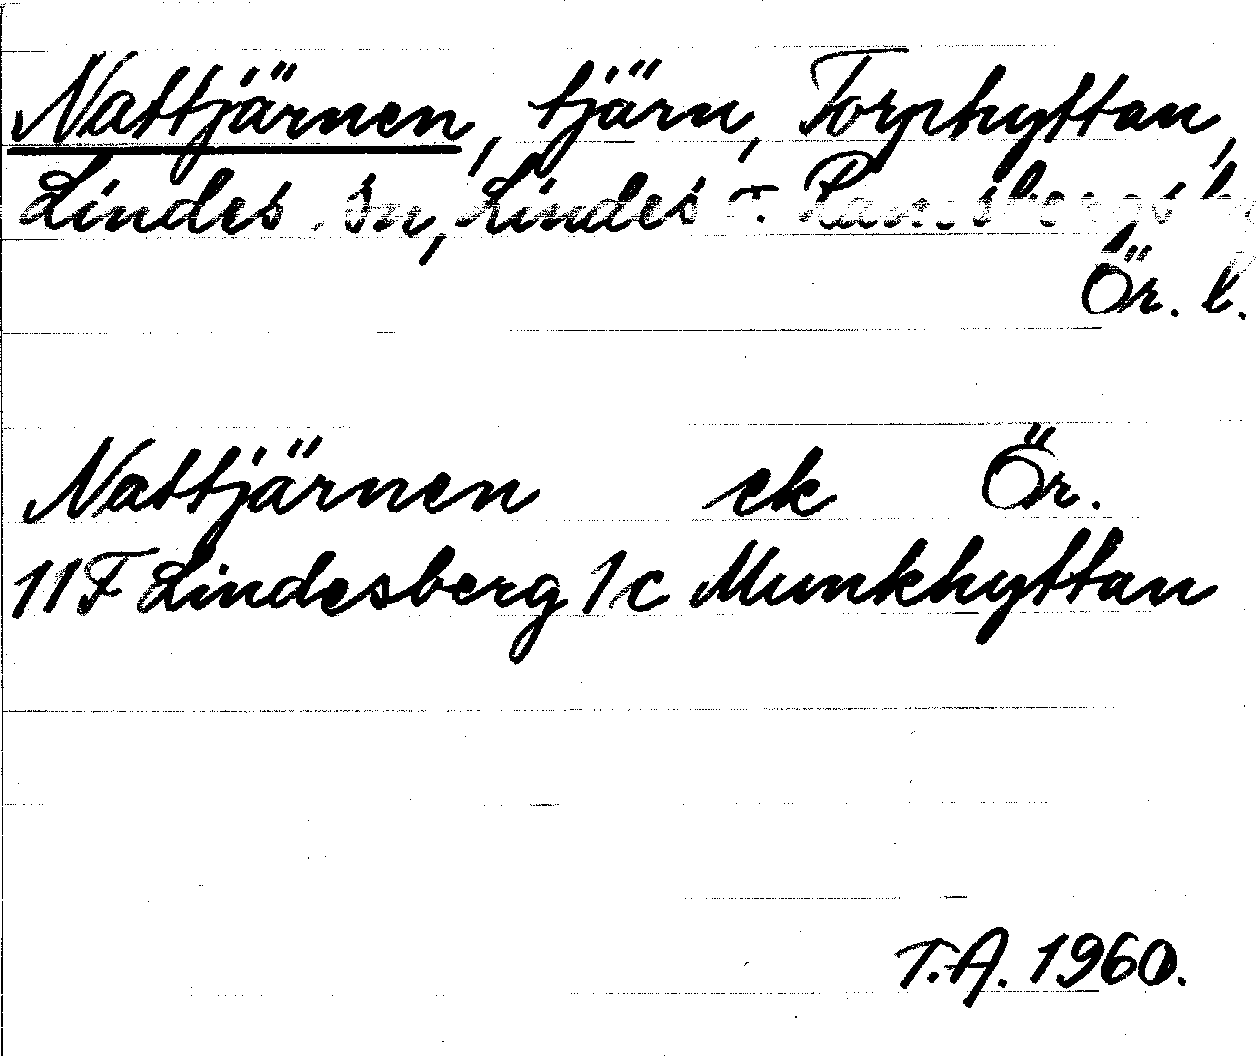 Nattjärnen, tjärn, Torphyttan,
Lindes sn, Lindes o. Ramsbergs
Ör. l.
Nattjärnen ek Ör.
11F Lindesberg 1c Munkhyttan
T.A. 1960.